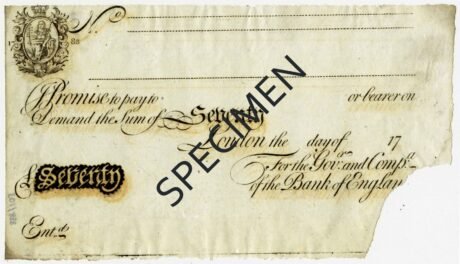 No
I Promise to pay to or bearer on
Demand the Sum of Seventy
London the day of 17
£ Seventy For the Govr. and Compa.
of the Bank of Englan
Entd.
SPECIMEN